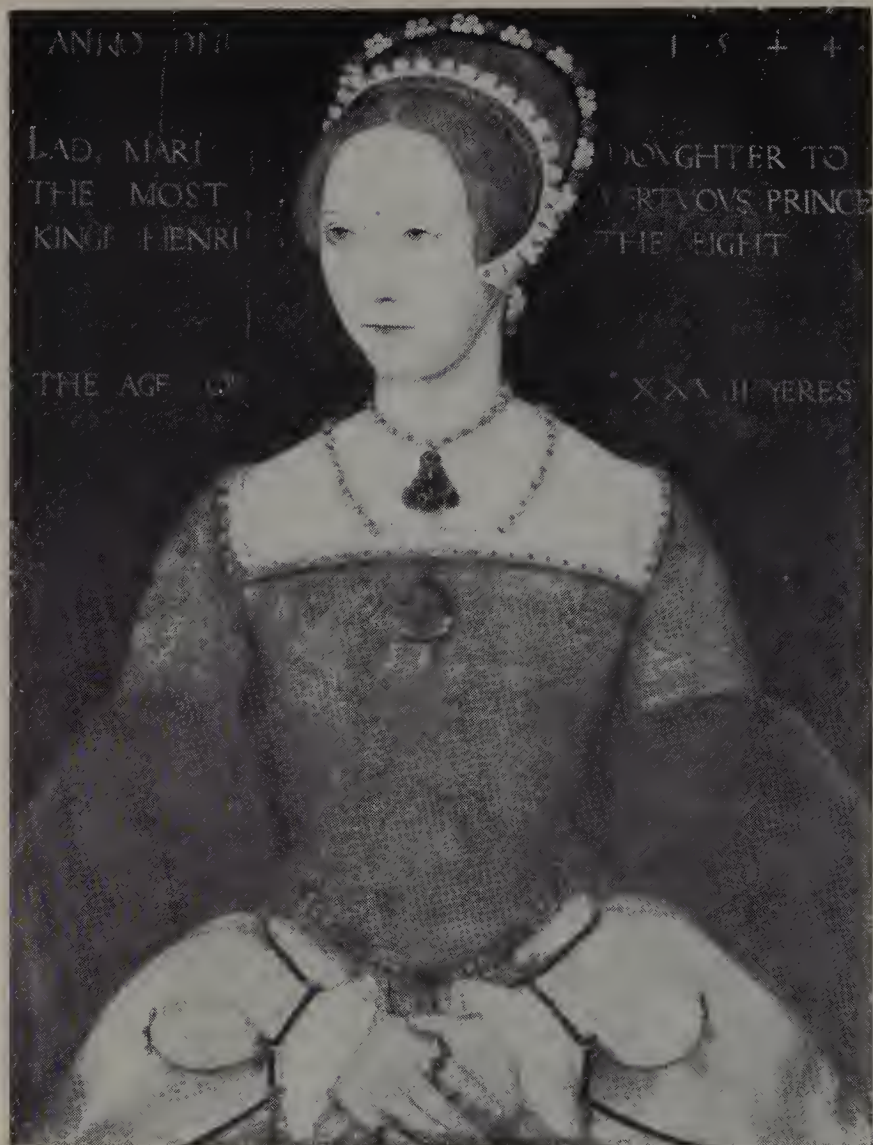 ANNO DNI 1 5 4 4
LADI MARI DOVGHTER TO
THE MOST VERTVOVS PRINCE
KINGE HENRI THE EIGHT
THE AGE OF XXVIII YERES